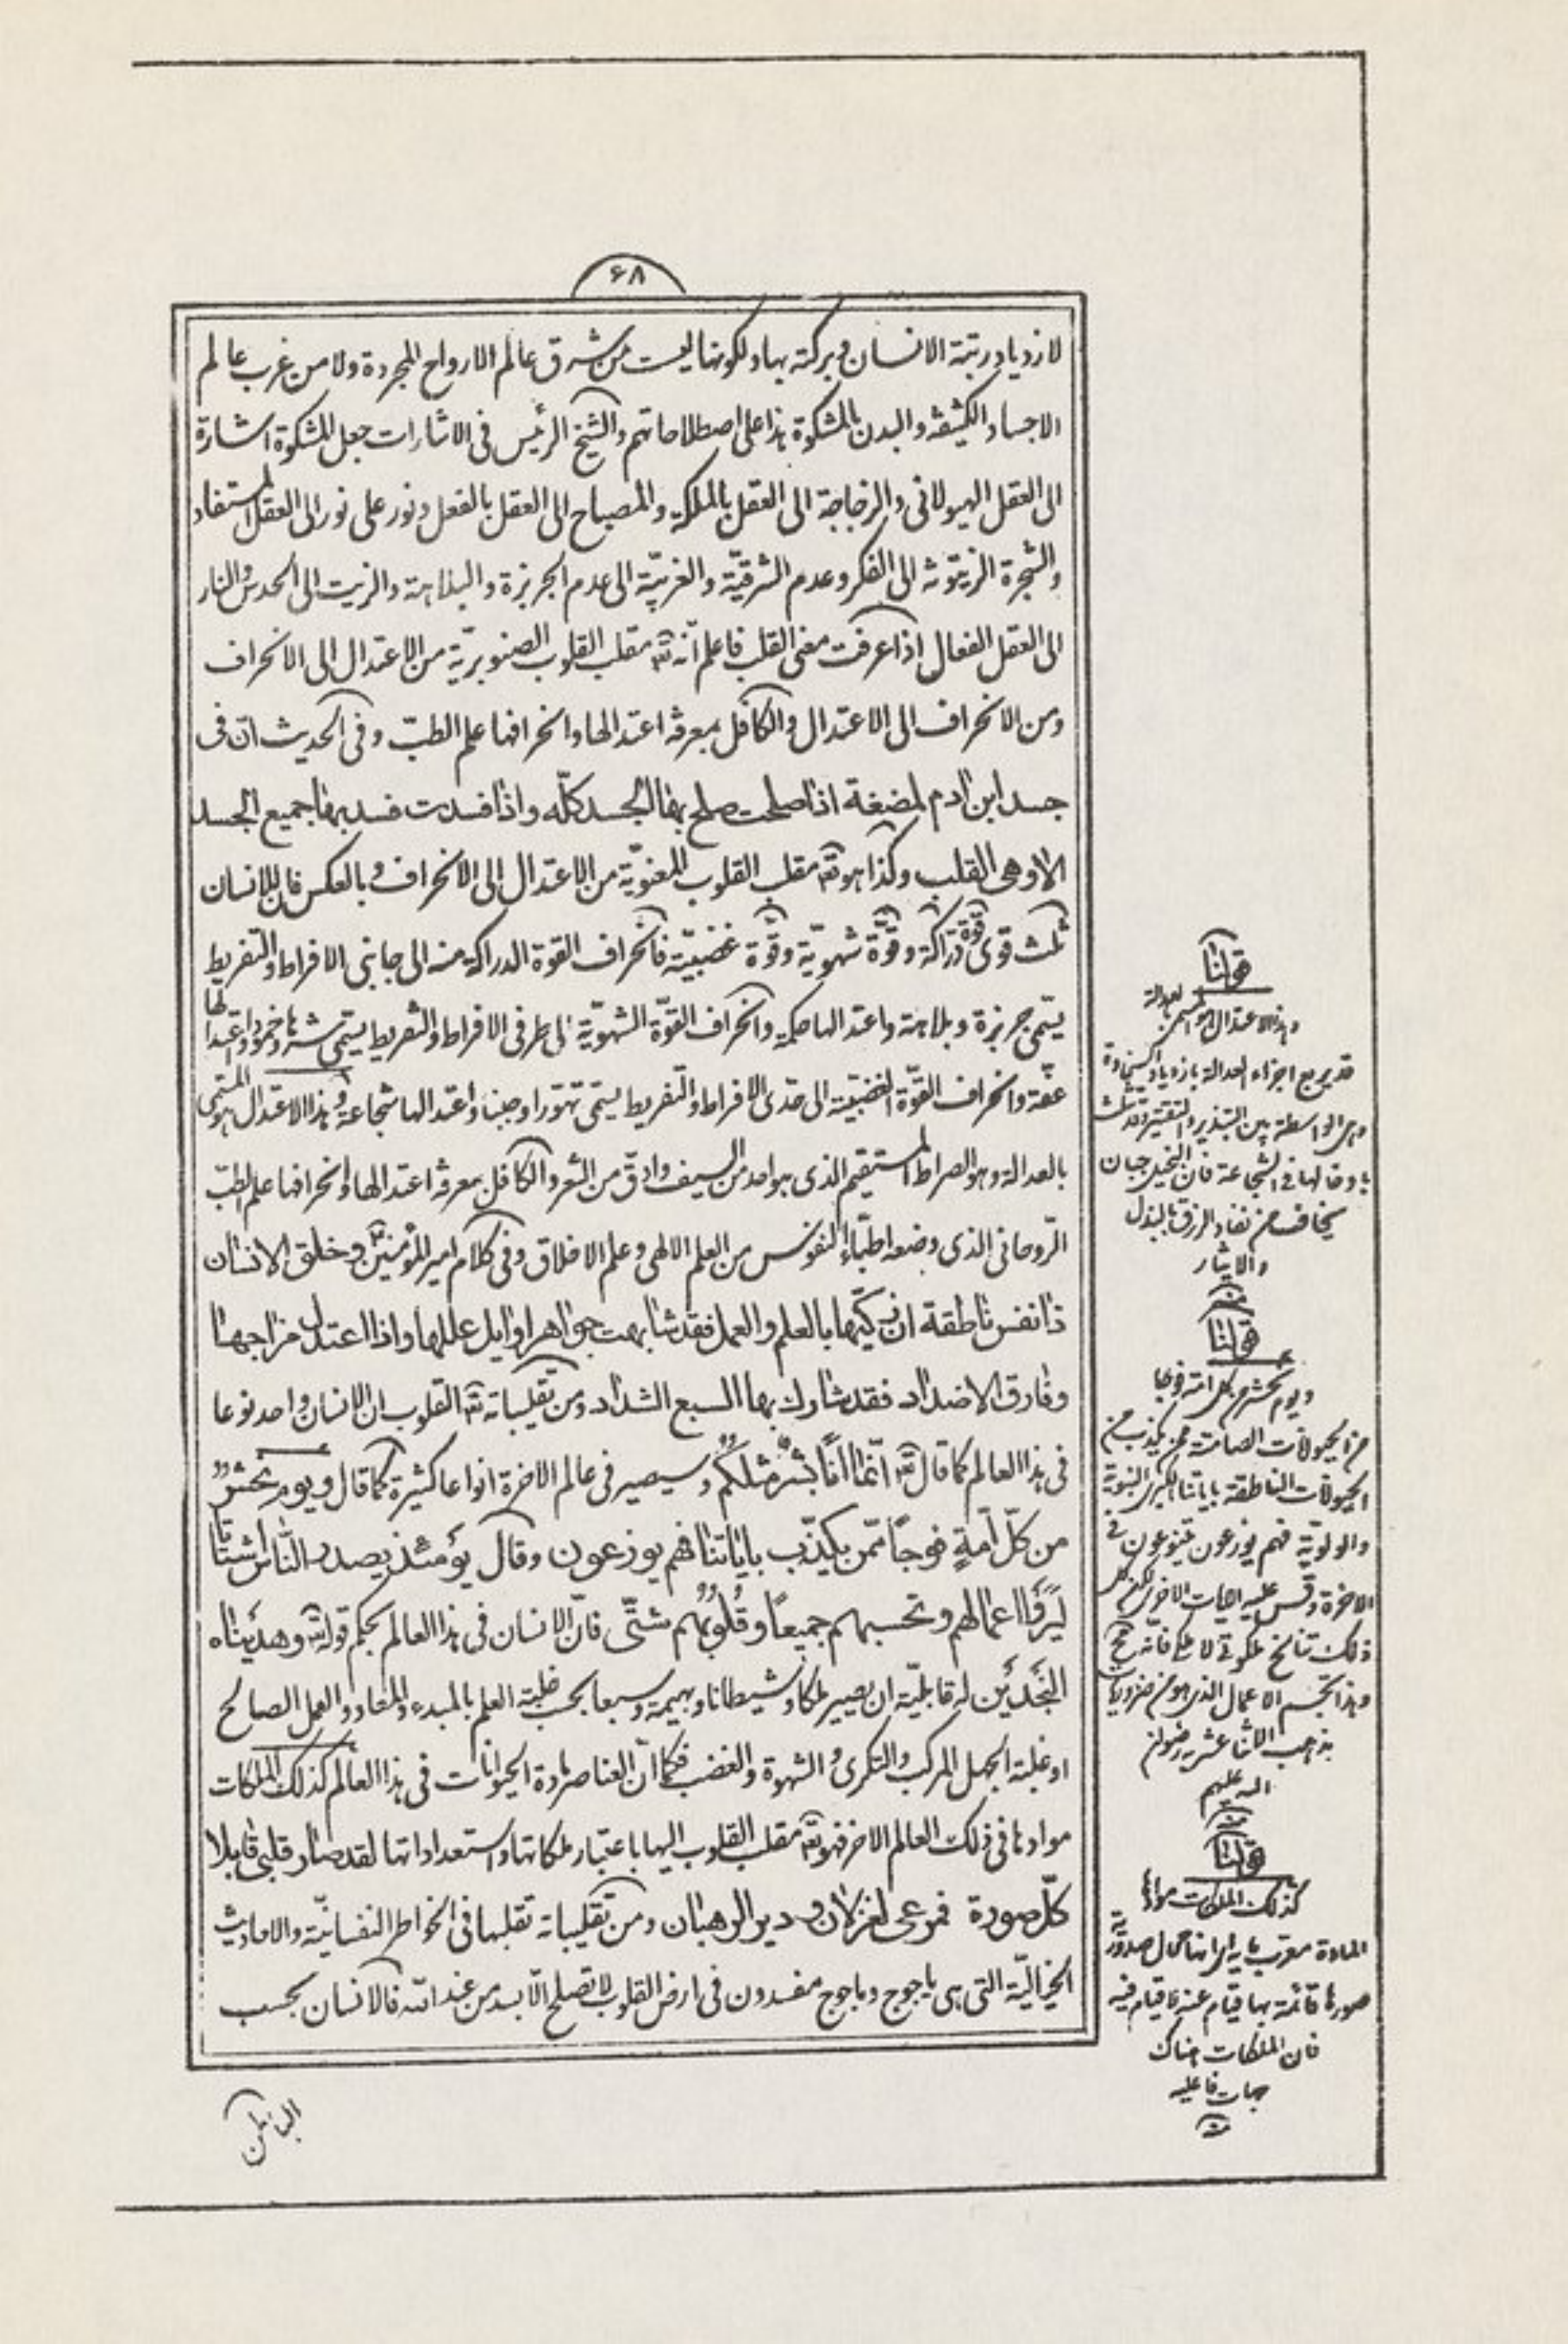 ۶۸
لازدیاد رتبة الانسان و برکته بها و لکونها لیست من شرق عالم الارواح المجردة ولا من غرب عالم
الاجساد الکثیفة و البدن بالمشکوة هذا علی اصطلاحاتهم والشیخ الرئیس فی الاشارات جعل المشکوة اشارة
الی العقل الهیولانی و الزجاجة الی العقل بالملکة والمصباح الی العقل بالفعل و نور علی نور الی العقل المستفاد
والشجرة الزیتونة الی الفکر و عدم الشرقیّة و الغربیّة الی عدم الجربزة و البلاهة و الزیت الی الحدس والنار
الی العقل الفعال اذا عرفت معنی القلب فاعلم انّه تعٓ مقلب القلوب الصنوبریّة من الاعتدال الی الانحراف
ومن الانحراف الی الاعتدال والکافل بمعرفة اعتدالها و انحرافها علم الطبّ و فی الحدیث انّ فی
جسد ابن ادم لمضغة اذا صلحت صلح بها الجسد کلّه و اذا فسدت فسد بها جمیع الجسد
الا و هی القلب و کذا هو تعٓ مقلب القلوب المعنویّة من الاعتدال الی الانحراف و بالعکس فان للانسان
ثلث قوی قوّة درّاکة و قوّة شهویّة و قوّة غضبیّة فانحراف القوة الدراکة منه الی جانبی الافراط والتفریط
یسمّی جربزة و بلاهة و اعتدالها حکمة و انحراف القوّة الشهویّة الی طرفی الافراط و التفریط یسمّی شرها و خمودا و اعتدالها
عفّة و انحراف القوّة الغضبیّة الی حدّی الافراط و التّفریط یسمّی تهوّرا و جبنا و اعتدالها شجاعة و هذا الاعتدال هو المسمّی
بالعدالة و هو الصراط المستقیم الذی هو احد من السیف و ادقّ من الشعر و الکافل بمعرفة اعتدالها و انحرافها علم الطبّ
الرّوحانی الذی وضعه اطبّاء النفوس من العلم الالهی و علم الاخلاق و فی کلام امیر المؤمنین ع و خلق الانسان
ذا نفس ناطقة ان زکّیها بالعلم و العمل فقد شابهت جواهر اوایل عللها و اذا اعتدل مزاجها
و فارق الاضداد فقد شارک بها السبع الشداد و من تقلیباته تعٓ القلوب ان الانسان واحد نوعا
فی هذا العالم کما قال تعٓ انّما انا بشر مثلکم و سیصیر فی عالم الاخرة انواعا کثیرة کما قال و یوم نحشر
من کلّ امّةٍ فوجاً ممّن یکذّب بایاتنا فهم یوزعون و قال یومئذ یصدر النّاس اشتاتا
لیروا اعمالهم و تحسبهم جمیعا و قلوبهم شتّی فانّ الانسان فی هذا العالم بحکم قوله تعٓ و هدیناه
النجدین له قابلیّة ان یصیر ملکا و شیطانا و بهیمة و سبعا بحسب غلبة العلم بالمبدء و المعاد و العمل الصالح
او غلبة الجهل المرکب و النکری و الشهوة و الغضب فکما انّ العناصر مادة الحیوانات فی هذا العالم کذلک الملکات
موادها فی ذلک العالم الاخر فهو تعٓ مقلب القلوب الیها باعتبار ملکاتها و استعداداتها لقد صار قلبی قابلا
کلّ صورة فمرعی لغزلان و دیر الرهبان و من تقلیباته تقلبها فی الخواطر النفسانیّة و الاحادیث
الخیالیّة التی هی یاجوج و ماجوج مفسدون فی ارض القلوب لا تصلح الّا بسد من عند الله فالانسان بحسب
قولنا
و هذا الاعتدال هو المسمی بالعدالة
قد یربع اجزاء العدالة بازدیاد السخاوة
و هی الواسطة بین التبذیر و التقتیر و قد تثلث
بادخالها فی الشجاعة فان البخیل جبان
یخاف من نفاد الرزق بالبذل
والایثار
منه
قولنا
و یوم نحشر من کل امة فوجا
من الحیوانات الصامتة ممن یکذب من
الحیوانات الناطقة بایاتنا الکبری النبویة
والولویة فهم یوزعون یتنوعون فی
الاخرة و قس علیه الایات الاخری لکن کل
ذلک تناسخ ملکوتی لا ملکی فانه
و هذا تجسم الاعمال الذی هو من ضروریات
مذهب الاثنا عشریه رضوان
الله علیهم
منه
قولنا
کذلک الملکات موادها
المادة
صورها قائمة بها قیام عنه لا قیام فیه
فان الملکات هناک
جهات فاعلیه
منه